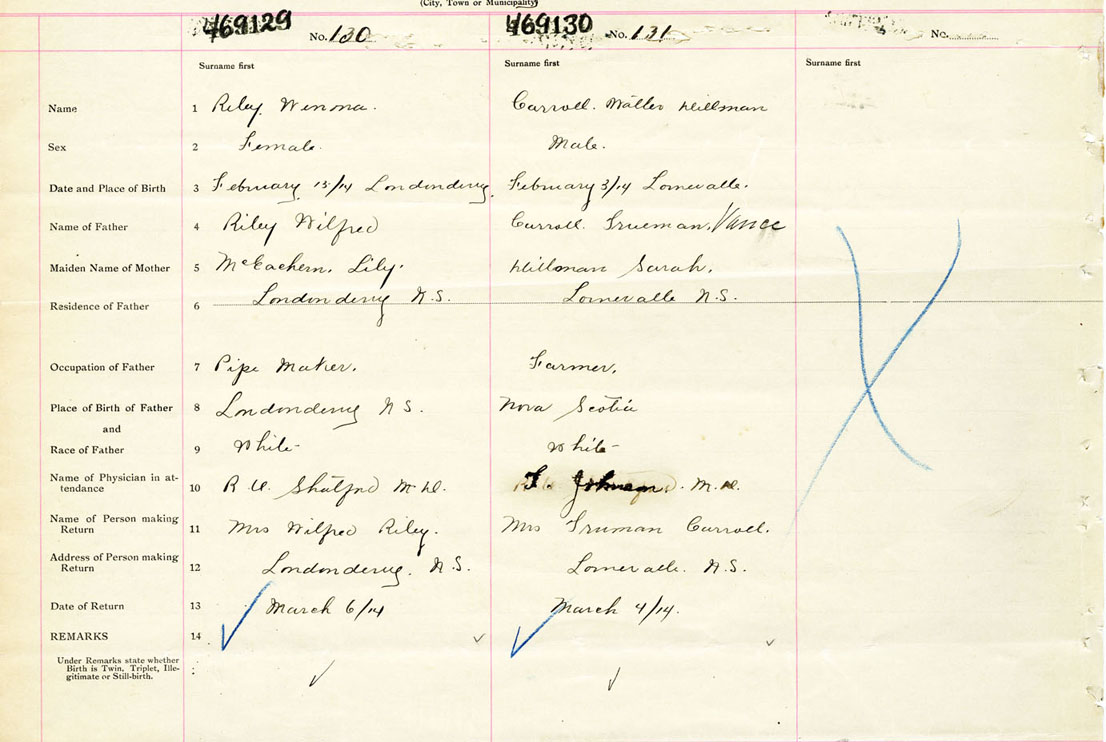 (City, Town or Municipality)
469129 No. 130 469130 No. 131 No.
Surname first Surname first Surname first
Name 1 Riley Winona. Carroll. Walter Hillsman
Sex 2 Female. Male.
Date and Place of Birth 3 February 15/14 Londonderry. February 3/14 Lornevalle.
Name of Father 4 Riley Wilfred Carroll. Trueman. Vance
Maiden Name of Mother 5 McEachern. Lily. Hillsman Sarah.
Residence of Father 6 Londonderry N.S. Lornevalle N.S.
Occupation of Father 7 Pipe Maker. Farmer.
Place of Birth of Father 8 Londonderry N S. Nova Scotia
and
Race of Father 9 White White
Name of Physician in at-
tendance 10 Shatford M.D. Johnson. M.D.
Name of Person making
Return 11 Mrs Wilfred Riley. Mrs Truman Carroll.
Address of Person making
Return 12 Londonderry. N.S. Lornevalle. N.S.
Date of Return 13 March 6/14 March 4/14.
REMARKS 14
Under Remarks state whether
Birth is Twin, Triplet, Ille-
gitimate or Still-birth.